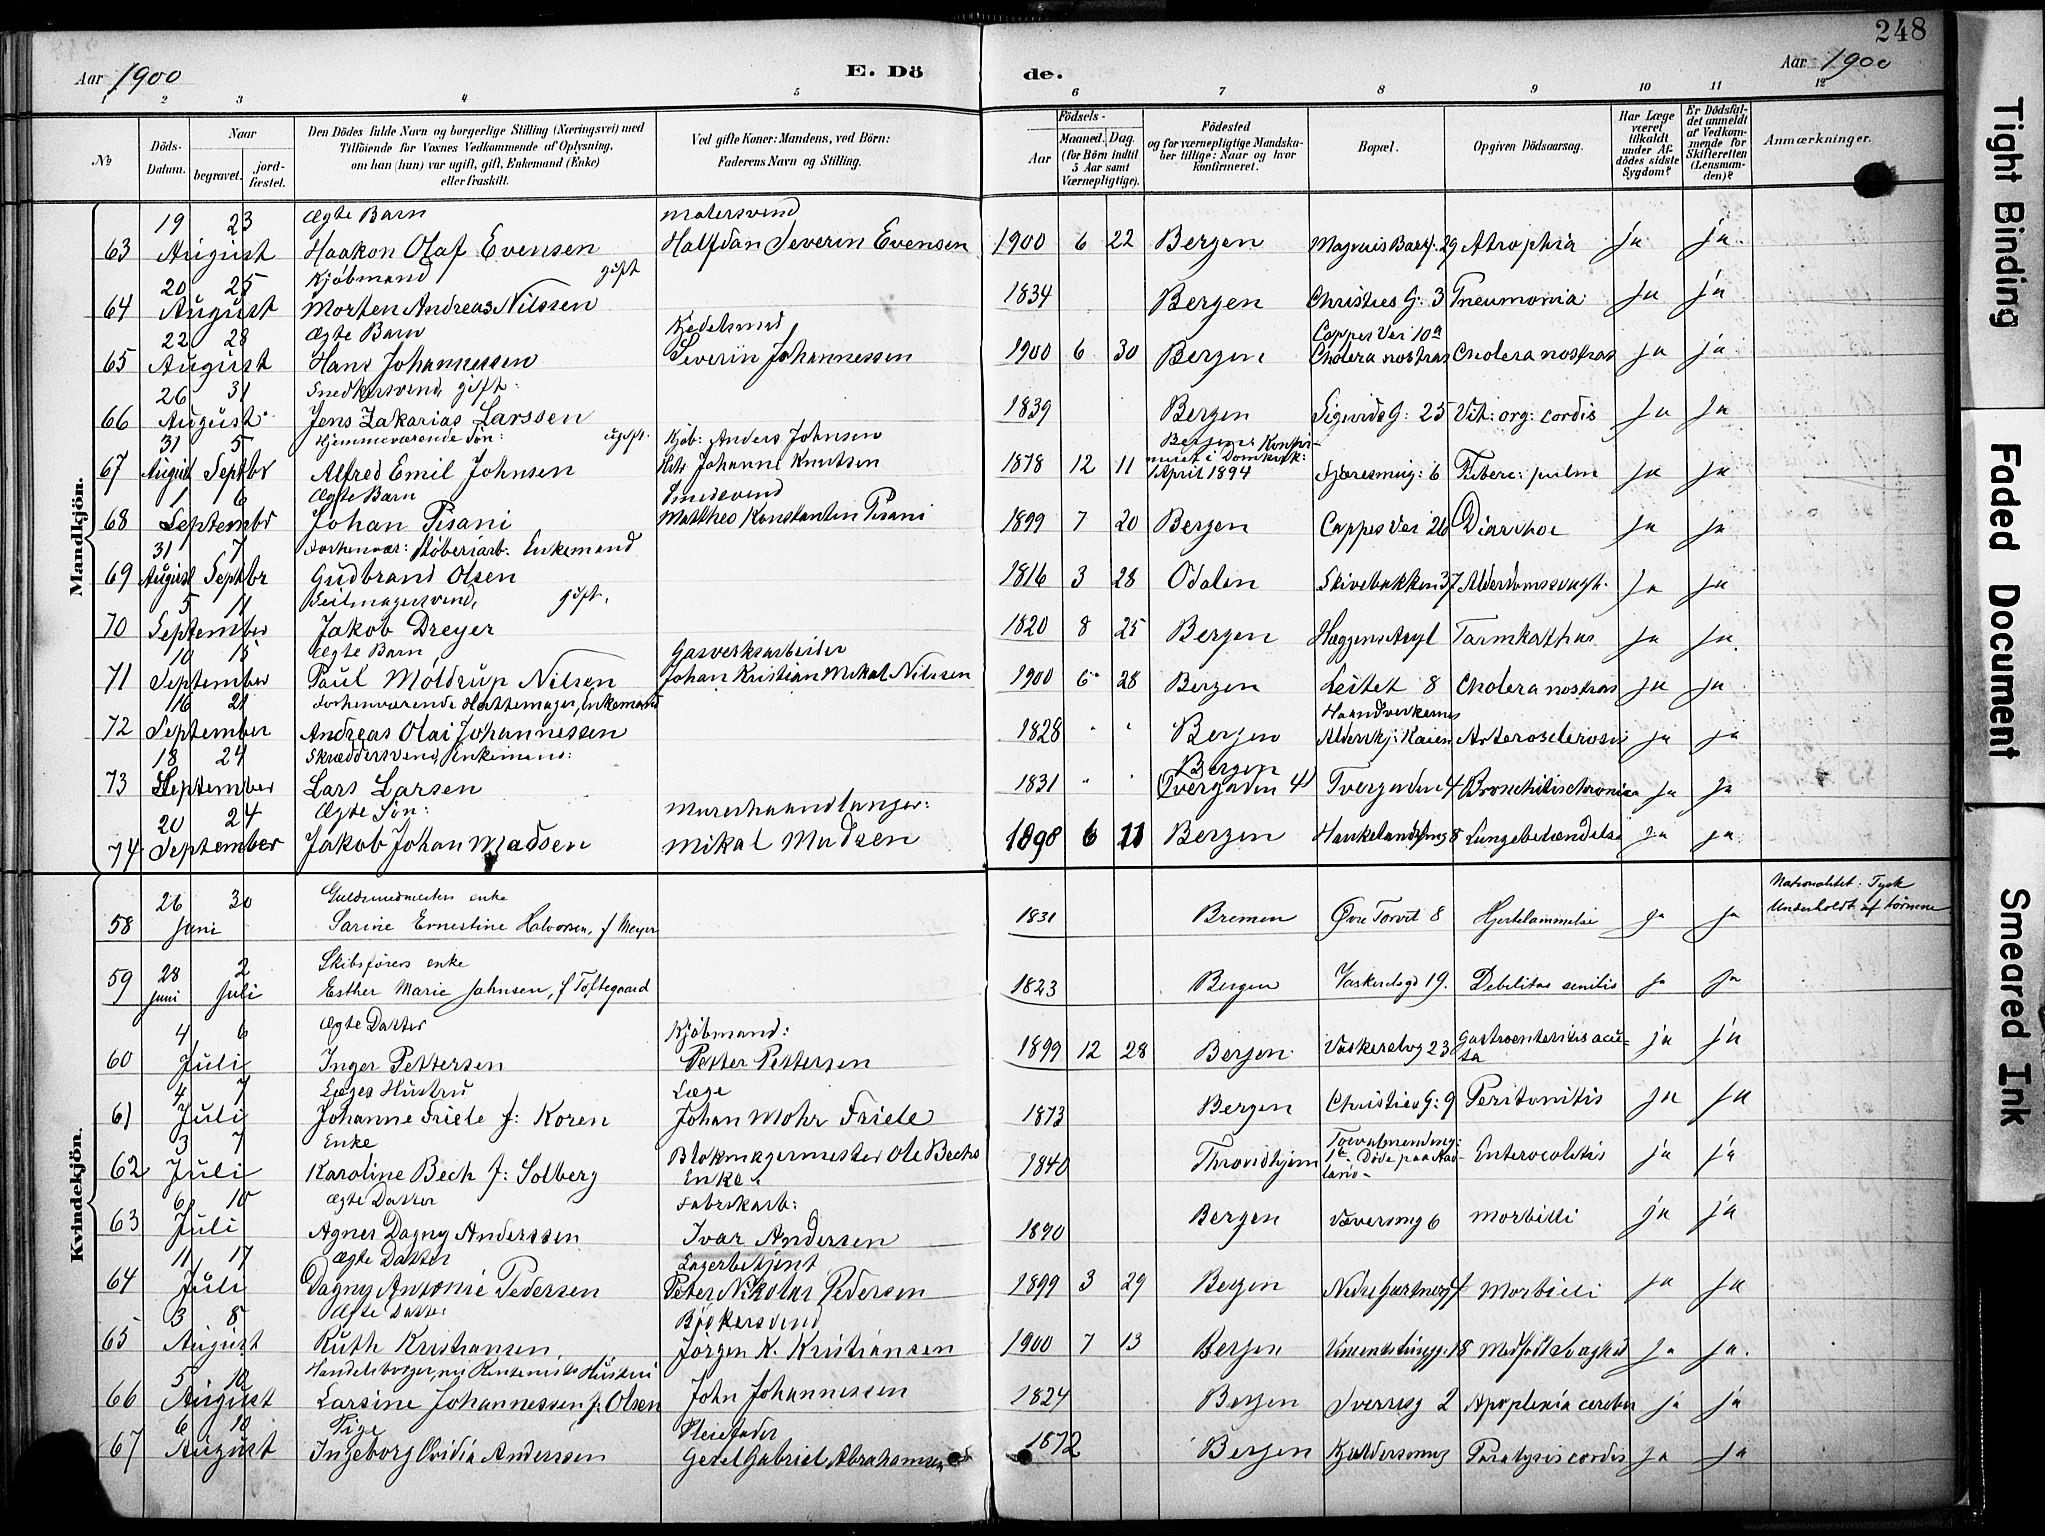 248
Aar 1900
E. Döde.
Aar 1900
1 2 3 4 5 6 7 8 9 10 11 12
No
Döds-Datum.
Naar
begravet.
jord-fæstet.
Den Dödes fulde Navn og borgerlige Stilling (Næringsvei) med
Tilföiende for Voxnes Vedkommende af Oplysning,
om han (hun) var ugift, gift, Enkemand (Enke)
eller fraskilt.
Ved gifte Koner: Mandens, ved Börn:
Faderens Navn og Stilling.
Födsels-
Aar
Maaned. Dag.
(for Börn indtil
5 Aar samt
Værnepligtige).
Födested
og for værnepligtige Mandska-
ber tillige: Naar og hvor
konfirmeret.
Bopæl.
Opgiven Dödsaarsag.
Har Læge
været
tilkaldt
under Af-
dödes sidste
Sygdom?
Er Dödsfal-
det anmeldt
af Vedkom-
mende for
Skifteretten
(Lensman-
den)?
Anmærkninger.
Mandkjön.
19 23 Ægte Barn Malersvend
63 August Haakon Olaf Evensen Halfdan Severin Evensen 1900 6 22 Bergen 29 Atrophia Ja Ja.
20 25 Kjøbmand gift
64 August Morten Andreas Nilssen 1834 Bergen Christies G: 3 Pneumonia Ja Ja
22 28 Ægte Barn Kjedelsmed Cappes Vei 10a
65 August Hans Johannessen Severin Johannessen 1900 6 30 Bergen Cholera nostras Cholera nostras Ja Ja
26 31 Snedkersvend, gift:
66 August Jens Zakarias Larssen 1839 Bergen Sigurds G: 25 Vit: org: cordis Ja Ja
31 5 Hjemmeværende Søn: ugift. Kjøb: Anders Johnsen Bergen: Konfir-
67 August Septbr Alfred Emil Johnsen Johanne Knutsen 1878 12 11 meret i Domkirk: April 1894 6 Tuberc: pulm Ja Ja
1 6 Ægte Barn Smedsvend
68 Septembr Johan Pisani Mattheo Konstantin Pisani 1899 7 20 Bergen Cappes Vei 26 Diarrhoe Ja Ja
31 7 Forhenvær: Støberiarb. Enkemand
69 August Septbr Gudbrand Olsen 1816 3 28 Odalen Skivebakken 37 Alderdomssvagh. Ja Ja
5 11 Seilmagersvend, gift.
70 September Jakob Dreyer 1820 8 25 Bergen Hæggens Asyl Tarmkathar Ja Ja.
10 15 Ægte Barn Gasverksarbeider
71 September Paul Moldrup Nilsen Johan Kristian Mikal Nilssen 1900 6 28 Bergen Leitet 8 Cholera nostras Ja Ja
16 21 Forhenværende Hattemager, Enkemand Haandverkernes
72 September Andreas Olai Johannessen 1828 " " Bergen Aldershj: Kaien Arterosclerosis Ja Ja
18 24 Skræddersvend, Enkemand: Bergen
73 September Lars Larsen 1831 " " Tvergaden 4 Tvergaden 4 Bronchitis chronica Ja Ja
20 24 Ægte Søn: Murerhaandlanger:
74 September Jakob Johan Madsen Mikal Madsen 1898 6 11 Bergen 8 Lungebetændelse Ja Ja
Kvindekjön.
26 30 Guldsmedmesters enke Nationalitet: Tysk
58 Juni Sarine Ernestine Halvorsen, f Meyer 1831 Bremen Øvre Torvet 8 Hjertelammelse Ja Ja Underholdt af Sønnene
28 2 Skibsførers enke
59 Juni Juli Esther Marie Jahnsen, f Toftegaard 1823 Bergen 19. Debilitas senilis Ja Ja
4 6 Ægte Datter Kjøbmand: Gastroenteritis acu-
60 Juli Inger Pettersen Petter Pettersen 1899 12 28 Bergen 23 ta Ja Ja
4 7 Læges Hustru Læge
61 Juli Johanne Friele f: Koren Johan Mohr Friele 1873 Bergen Christies G: 9 Peritonitis Ja Ja
3 7 Enke Blokmagermester Ole Bechs
62 Juli Karoline Bech f: Solberg Enke. 1840 Throndhjem Torvalmending: 1b - Døde paa Aadland - Enterocolitis Ja Ja
6 10 Ægte Datter Fabrikarb:
63 Juli Agnes Dagny Anderssen Ivar Andersen 1890 Bergen Væversmg 6 Morbilli Ja Ja
11 17 Ægte Datter Lagerbetjent
64 Juli Dagny Antonie Pedersen Peter Nikolai Pedersen 1899 3 29 Bergen 4 Morbilli Ja Ja
3 8 Ægte Datter Bødkersvend
65 August Ruth Kristiansen Jørgen K. Kristiansen 1900 7 13 Bergen 18 Medfødt Svaghed Ja Ja.
5 10 Handelsborger, nu Rentenists Hustru
66 August Larsine Johannessen f: Olsen John Johannessen 1824 Bergen Sverresg 2 Apoplexia cerebri Ja Ja
6 10 Pige Pleiefader
67 August Ingeborg Ovidia Anderssen Gerel Gabriel Abrahamsen 1872 Bergen Paralysis cordis Ja Ja
Tight Binding
Faded Document
Smeared Ink